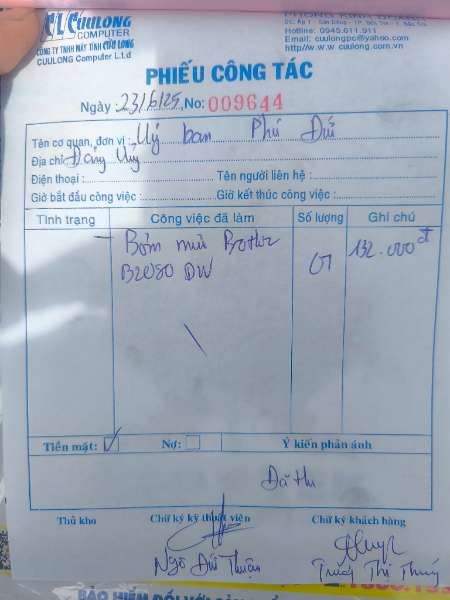 CL CUULONG
COMPUTER
CÔNG TY TNHH MÁY TÍNH CỬU LONG
CUULONG Computer L.t.d
PHÒNG KINH DOANH
Hotline: 0945.011.911
Email: cuulongpc@yahoo.com
http://w.w.w cuulong.com.vn
PHIẾU CÔNG TÁC
Ngày: 23/6/25, No: 009644
Tên cơ quan, đơn vị: Uỷ ban Phú Đức
Địa chỉ: Đảng Uỷ
Điện thoại: Tên người liên hệ:
Giờ bắt đầu công việc: Giờ kết thúc công việc:
Tình trạng Công việc đã làm Số lượng Ghi chú
- Bơm mực Brother 01 132.000đ
B2080 DW
Tiền mặt: ✓ Nợ: Ý kiến phản ánh
Đã thu
Thủ kho Chữ ký kỹ thuật viên Chữ ký khách hàng
Ngô Đức Thuận Thị Thuý